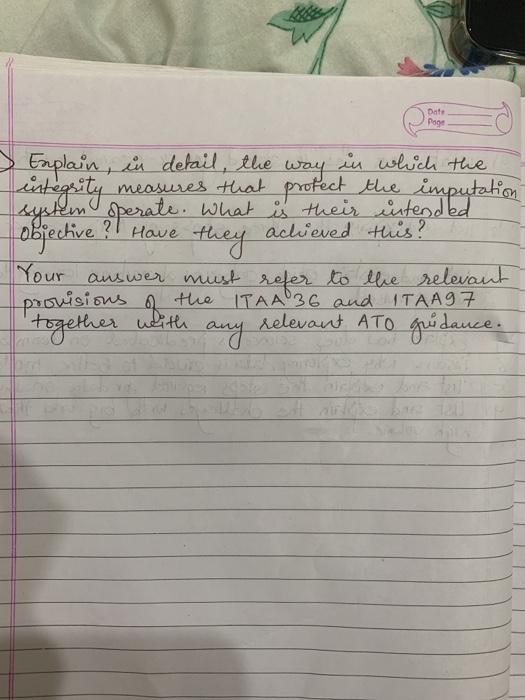 Date
Page
Explain, in detail, the way in which the
integrity measures that protect the imputation
system operate. What is their intended
objective? Have they achieved this?
Your answer must refer to the relevant
provisions of the ITAA 36 and ITAA97
together with any relevant ATO guidance.